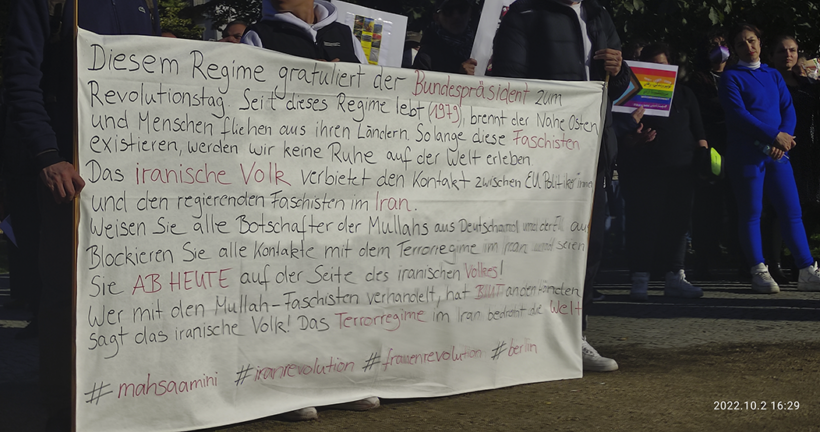 Diesem Regime gratuliert der Bundespräsident zum
Revolutionstag. Seit dieses Regime lebt (1979), brennt der Nahe Osten
und Menschen fliehen aus ihren Ländern. Solange diese Faschisten
existieren, werden wir keine Ruhe auf der Welt erleben
Das iranische Volk verbietet den Kontakt zwischen EU Politiker*innen
und den regierenden Faschisten im Iran.
Weisen Sie alle Botschafter der Mullahs aus Deutschland und der EU aus
Blockieren Sie alle Kontakte mit dem Terrorregime im Iran und seien
Sie AB HEUTE auf der Seite des iranischen Volkes!
Wer mit den Mullah-Faschisten verhandelt, hat BLUT an den Händen
sagt das iranische Volk! Das Terrorregime im Iran bedroht die Welt
#mahsaamini #iranrevolution #frauenrevolution #berlin
2022.10.2 16:29